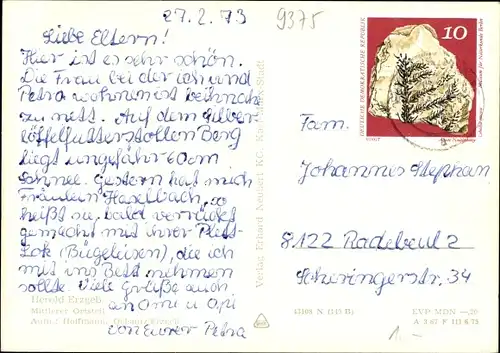 27.2.73
9375
Liebe Eltern!
Hier ist es sehr schön.
Die Frau bei der ich und
Petra wohnen ist beihnahe
zu nett. Auf dem
liegt ungefähr 60cm
Schnee. Gestern hat mich
Fräulein Haselbach, so
heißt sie, bald verrückt
gemacht mit ihrer
(Bügeleisen), die ich
mit ins Bett nehmen
sollte. Viele Grüße auch
an Omi u Opi
von eurer Petra
Herold Erzgeb.
Mittlerer Ortsteil
Verlag Erhard Neubert KG, Karl-Marx-Stadt
DEUTSCHE DEMOKRATISCHE REPUBLIK
10
Fam.
Johannes Stephan
8122 Radebeul 2
34
EVP MDN —,20
1.-